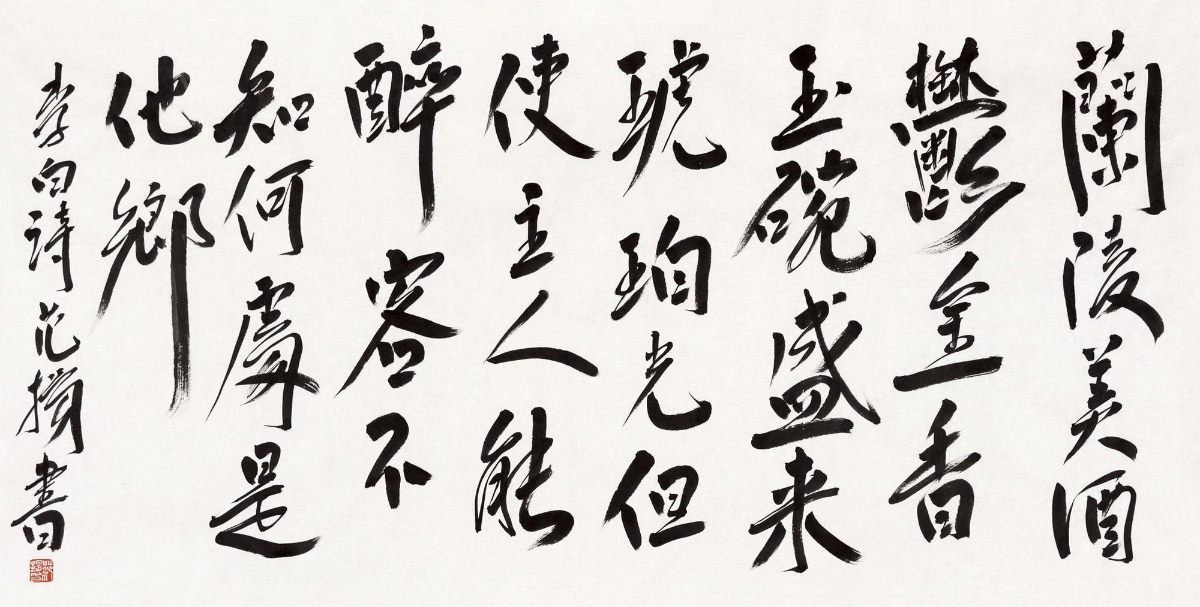 蘭陵美酒
鬱金香
玉碗盛来
琥珀光但
使主人能
醉客不
知何處是
他鄉
李白詩 范書